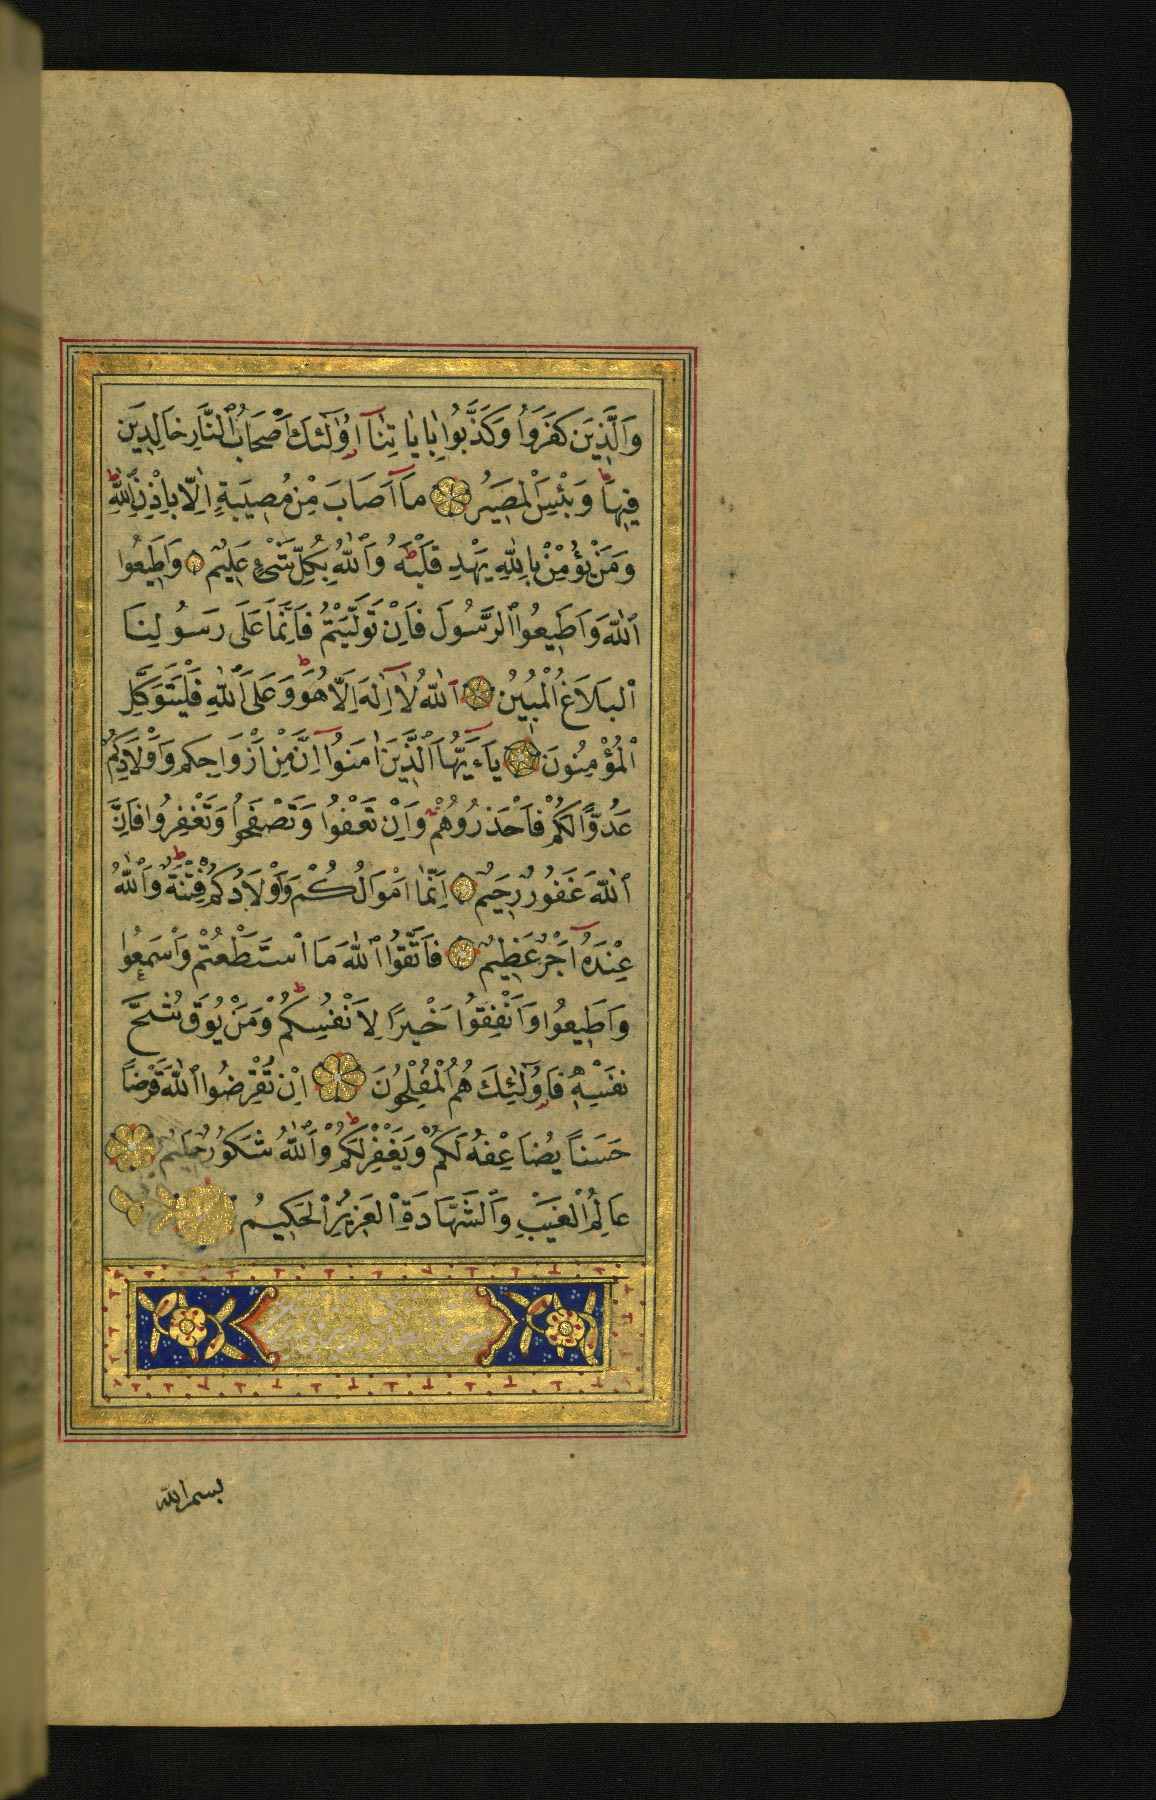 وَالَّذِينَ كَفَرُوا وَكَذَّبُوا بِاٰيَاتِنَآ اُولٰٓئِكَ اَصْحَابُ النَّارِ خَالِدِينَ
فِيهَا وَبِئْسَ الْمَصِيرُ مَآ اَصَابَ مِنْ مُصِيبَةٍ اِلَّا بِاِذْنِ اللّٰهِ
وَمَنْ يُؤْمِنْ بِاللّٰهِ يَهْدِ قَلْبَهُ وَاللّٰهُ بِكُلِّ شَىْءٍ عَلِيمٌ وَاَطِيعُوا
اللّٰهَ وَاَطِيعُوا الرَّسُولَ فَاِنْ تَوَلَّيْتُمْ فَاِنَّمَا عَلَى رَسُولِنَا
الْبَلَاغُ الْمُبِينُ اَللّٰهُ لَآ اِلٰهَ اِلَّا هُوَ وَعَلَى اللّٰهِ فَلْيَتَوَكَّلِ
الْمُؤْمِنُونَ يَآءَيُّهَا الَّذِينَ اٰمَنُوٓا اِنَّ مِنْ اَزْوَاجِكُمْ وَاَوْلَادِكُمْ
عَدُوًّا لَكُمْ فَاحْذَرُوهُمْ وَاِنْ تَعْفُوا وَتَصْفَحُوا وَتَغْفِرُوا فَاِنَّ
اللّٰهَ غَفُورٌ رَحِيمٌ اِنَّمَا اَمْوَالُكُمْ وَاَوْلَادُكُمْ فِتْنَةٌ وَاللّٰهُ
عِنْدَهُٓ اَجْرٌ عَظِيمٌ فَاتَّقُوا اللّٰهَ مَا اسْتَطَعْتُمْ وَاسْمَعُوا
وَاَطِيعُوا وَاَنْفِقُوا خَيْرًا لِاَنْفُسِكُمْ وَمَنْ يُوقَ شُحَّ
نَفْسِهِ فَاُولٰٓئِكَ هُمُ الْمُفْلِحُونَ اِنْ تُقْرِضُوا اللّٰهَ قَرْضًا
حَسَنًا يُضَاعِفْهُ لَكُمْ وَيَغْفِرْ لَكُمْ وَاللّٰهُ شَكُورٌ حَلِيمٌ
عَالِمُ الْغَيْبِ وَالشَّهَادَةِ الْعَزِيزُ الْحَكِيمُ
بسم الله